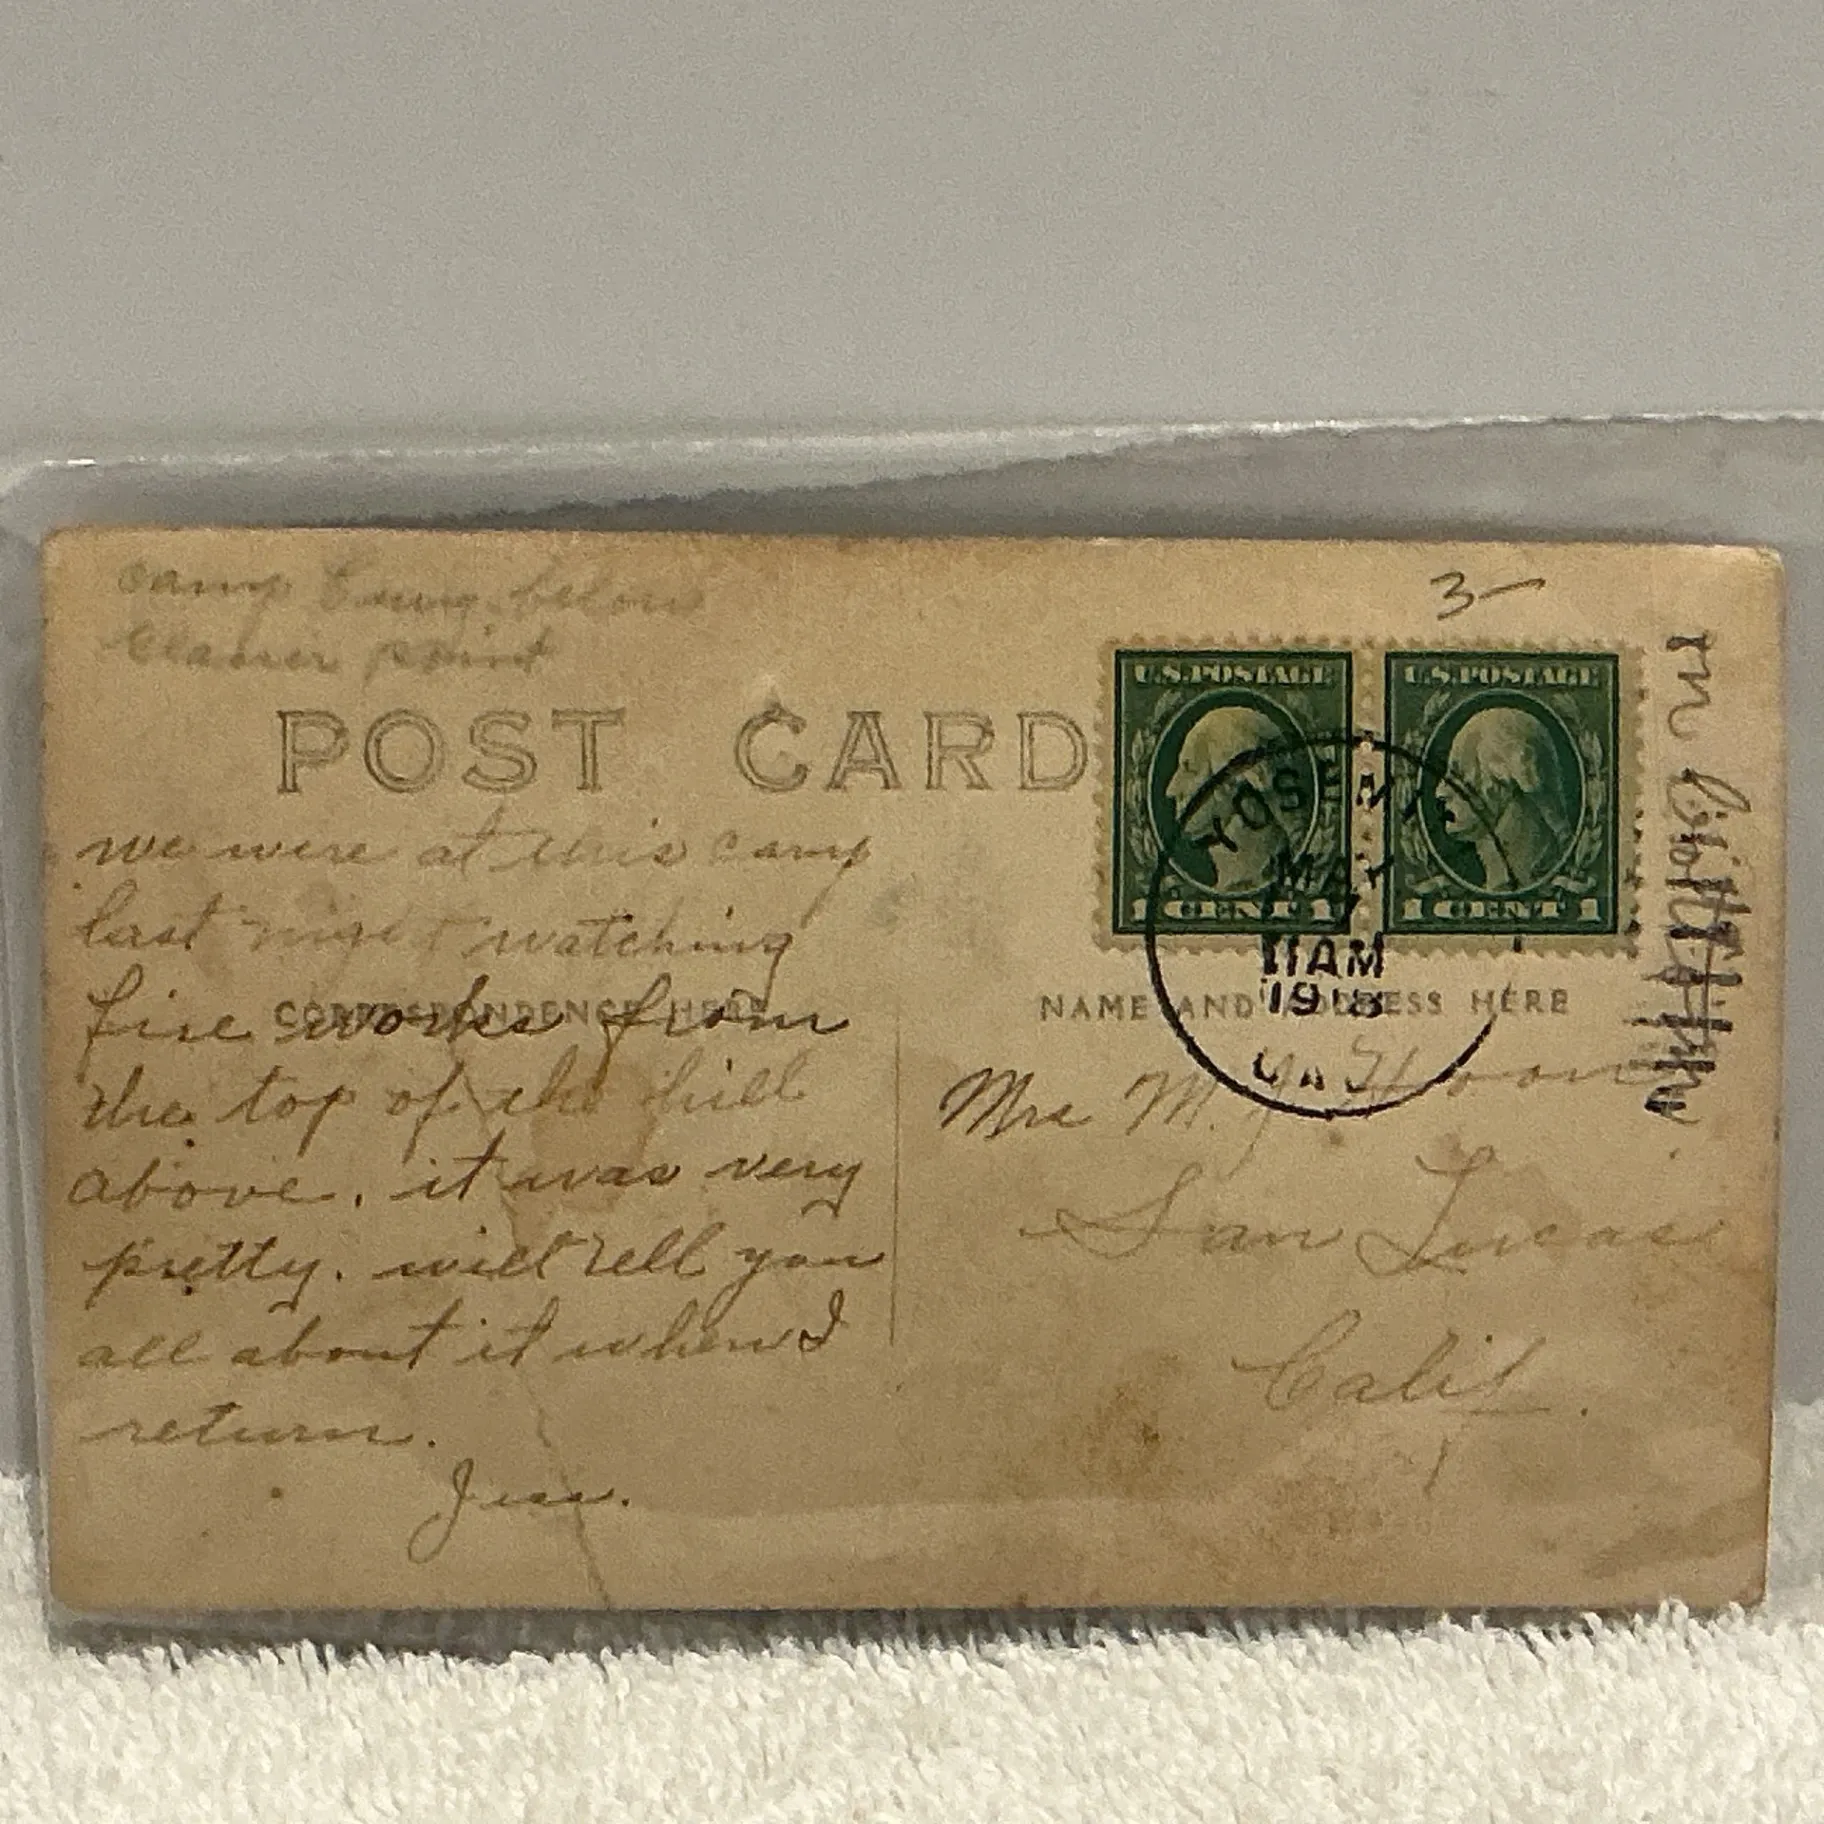 Camp Curry below
Glacier point
3-
POST CARD
U.S.POSTAGE
1 CENT 1
U.S.POSTAGE
1 CENT 1
YOSEMITE
MAY
11AM
1918
we were at this camp
last night watching
CORRESPONDENCE HERE
fire works from
the top of the hill
above. it was very
pretty. will tell you
all about it when I
return.
Jess.
NAME AND ADDRESS HERE
Mrs M. J.
San Lucas
Calif.